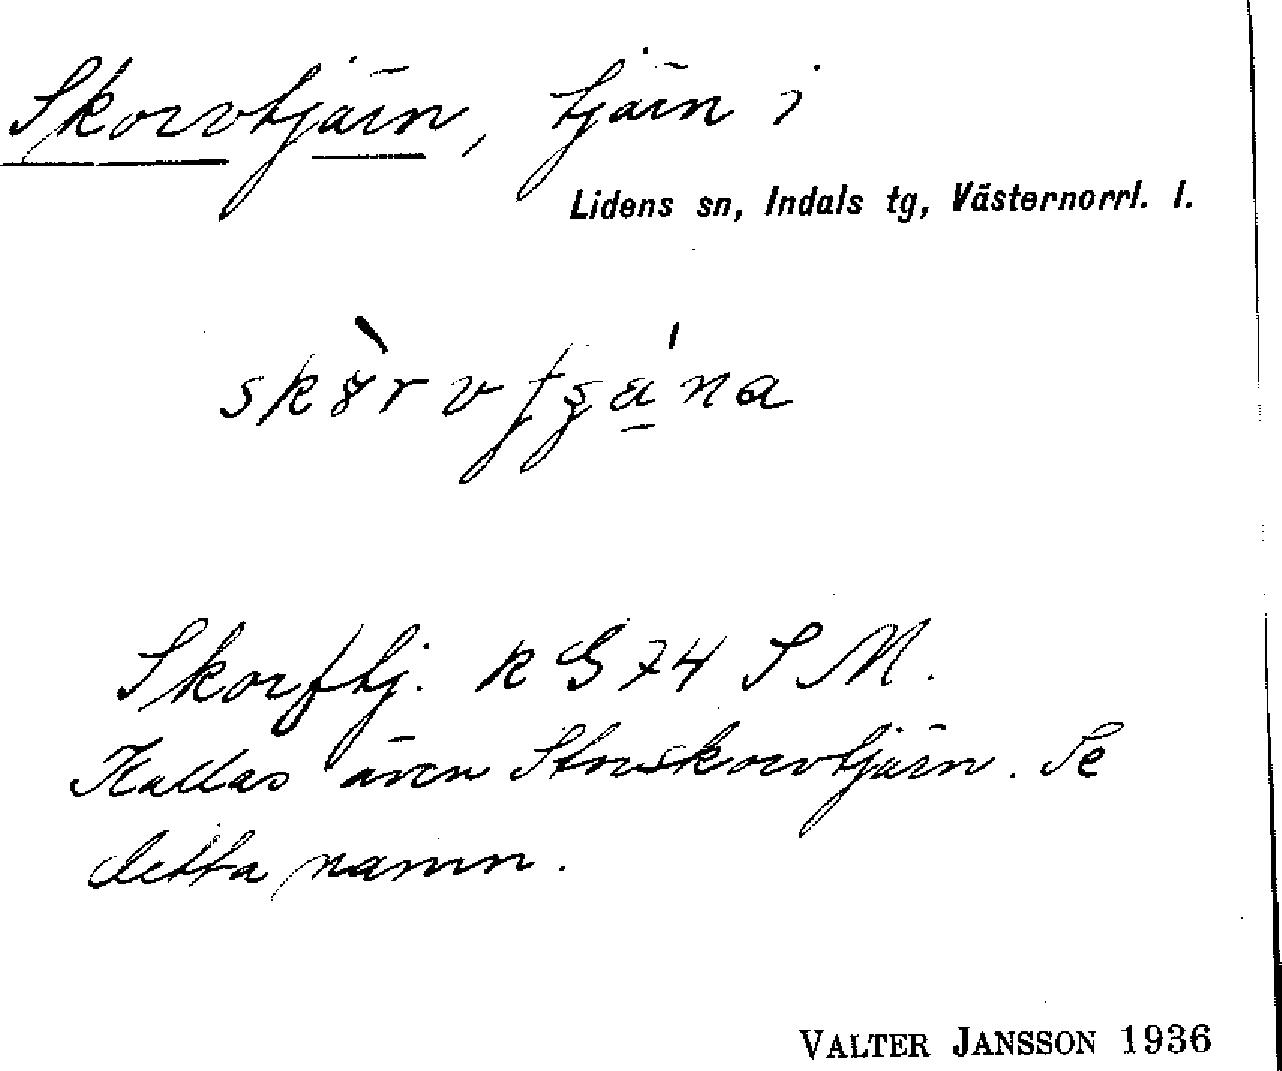 Skorvtjärn, tjärn i
Lidens sn, Indals tg, Västernorrl. l.
Skorftj. k G 74 S M.
Kallas även Storskorvtjärn. Se
detta namn.
VALTER JANSSON 1936